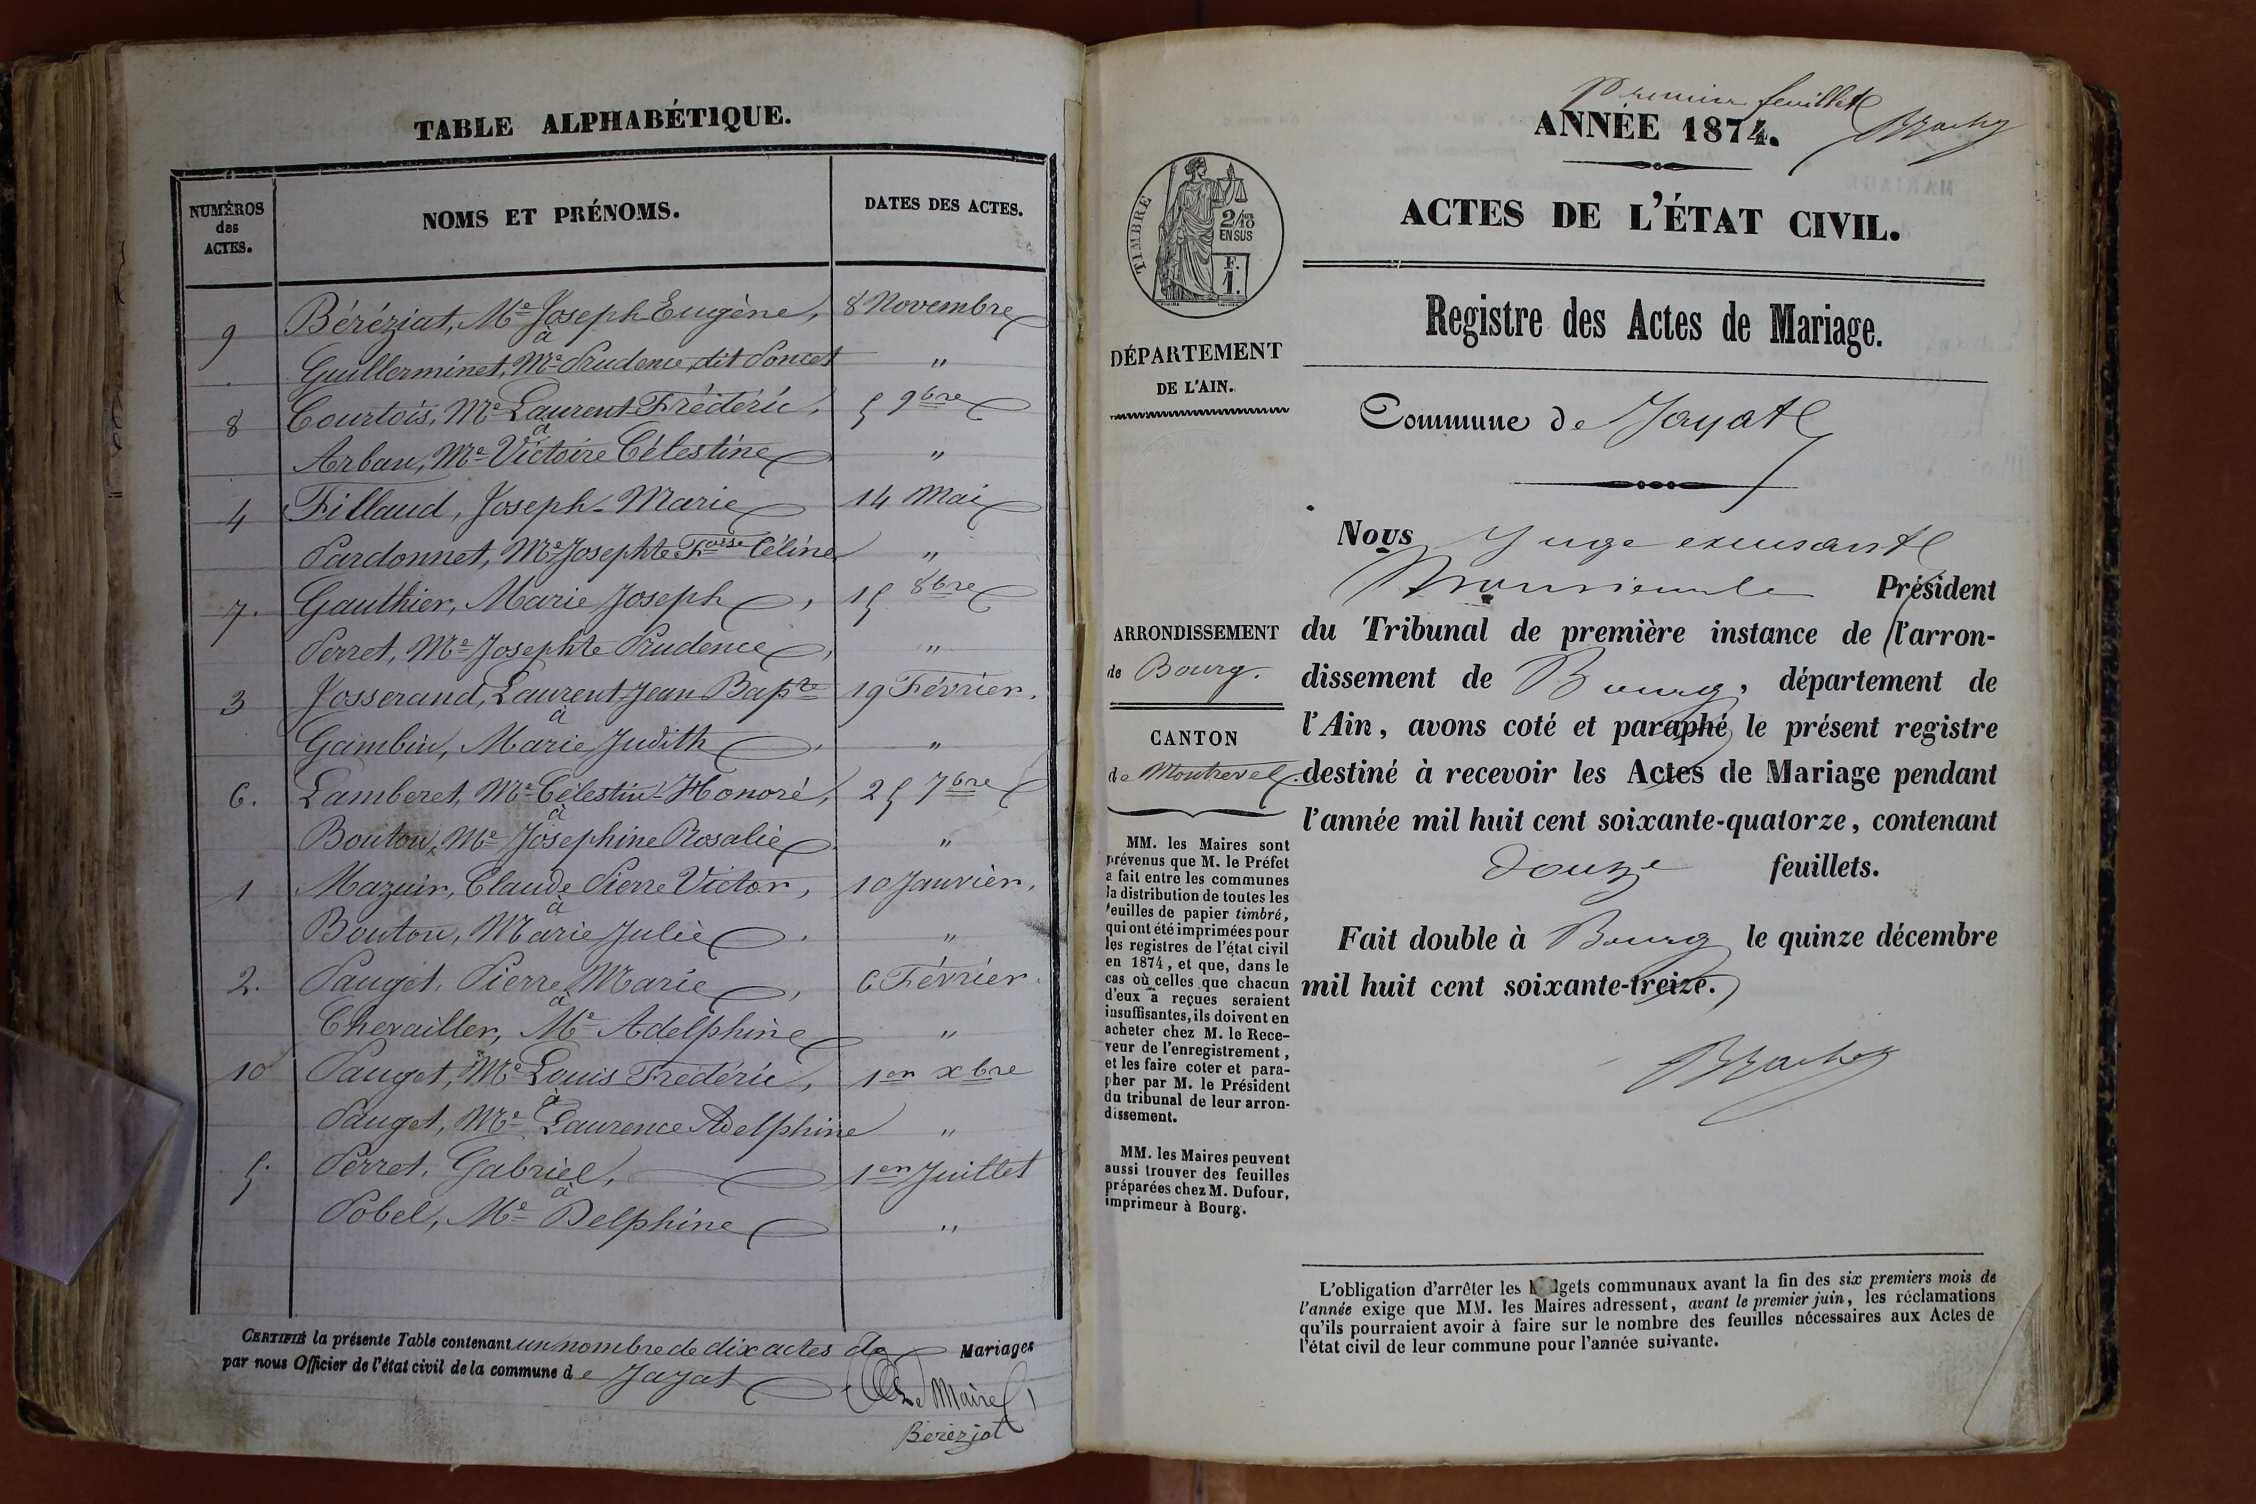 TABLE ALPHABÉTIQUE.
NUMÉROS des ACTES.
NOMS ET PRÉNOMS.
DATES DES ACTES.
9 Béréziat, Me Joseph Eugène, 8 Novembre
à
Guillerminet, Me Prudence, dit Poncet "
8 Courtois, Me Laurent Frédéric, 5 9bre
à
Arban, Me Victoire Célestine "
4 Fillaud, Joseph-Marie 14 Mai
Pardonnet, Me Josephte Foise Céline "
7. Gauthier, Marie Joseph, 15 8bre
Perret, Me Josephte Prudence, "
3 Josserand, Laurent Jean Bapte 19 Février.
à
Gambin, Marie Judith "
6. Lamberet, Me Célestin-Honoré, 25 7bre
à
Bouton, Me Joséphine Rosalie "
1 Mazuir, Claude Pierre Victor, 10 Janvier.
à
Bouton, Marie Julie "
2. Pauget, Pierre Marie, 6 Février.
à
Chevailler, Me Adelphine "
10 Pauget, Me Louis Frédéric, 1er xbre
à
Pauget, Me Laurence Adelphine "
5. Perret, Gabriel, 1er Juillet
à
Pobel, Me Delphine "
CERTIFIÉ la présente Table contenant un nombre de dix actes de Mariages
par nous Officier de l'état civil de la commune de Jayat
Le Maire
Béréziat
Premier feuillet
ANNÉE 1874.
ACTES DE L'ÉTAT CIVIL.
TIMBRE
2/10 EN SUS
F. 1.
Registre des Actes de Mariage.
DÉPARTEMENT
DE L'AIN.
Commune de Jayat
ARRONDISSEMENT
de Bourg.
CANTON
de Montrevel.
MM. les Maires sont
prévenus que M. le Préfet
a fait entre les communes
la distribution de toutes les
feuilles de papier timbré,
qui ont été imprimées pour
les registres de l'état civil
en 1874, et que, dans le
cas où celles que chacun
d'eux a reçues seraient
insuffisantes, ils doivent en
acheter chez M. le Rece-
veur de l'enregistrement,
et les faire coter et para-
pher par M. le Président
du tribunal de leur arron-
dissement.
MM. les Maires peuvent
aussi trouver des feuilles
préparées chez M. Dufour,
imprimeur à Bourg.
Nous Juge excusant
Monsieur le Président
du Tribunal de première instance de l'arron-
dissement de Bourg, département de
l'Ain, avons coté et paraphé le présent registre
destiné à recevoir les Actes de Mariage pendant
l'année mil huit cent soixante-quatorze, contenant
douze feuillets.
Fait double à Bourg le quinze décembre
mil huit cent soixante-treize.
L'obligation d'arrêter les budgets communaux avant la fin des six premiers mois de
l'année exige que MM. les Maires adressent, avant le premier juin, les réclamations
qu'ils pourraient avoir à faire sur le nombre des feuilles nécessaires aux Actes de
l'état civil de leur commune pour l'année suivante.